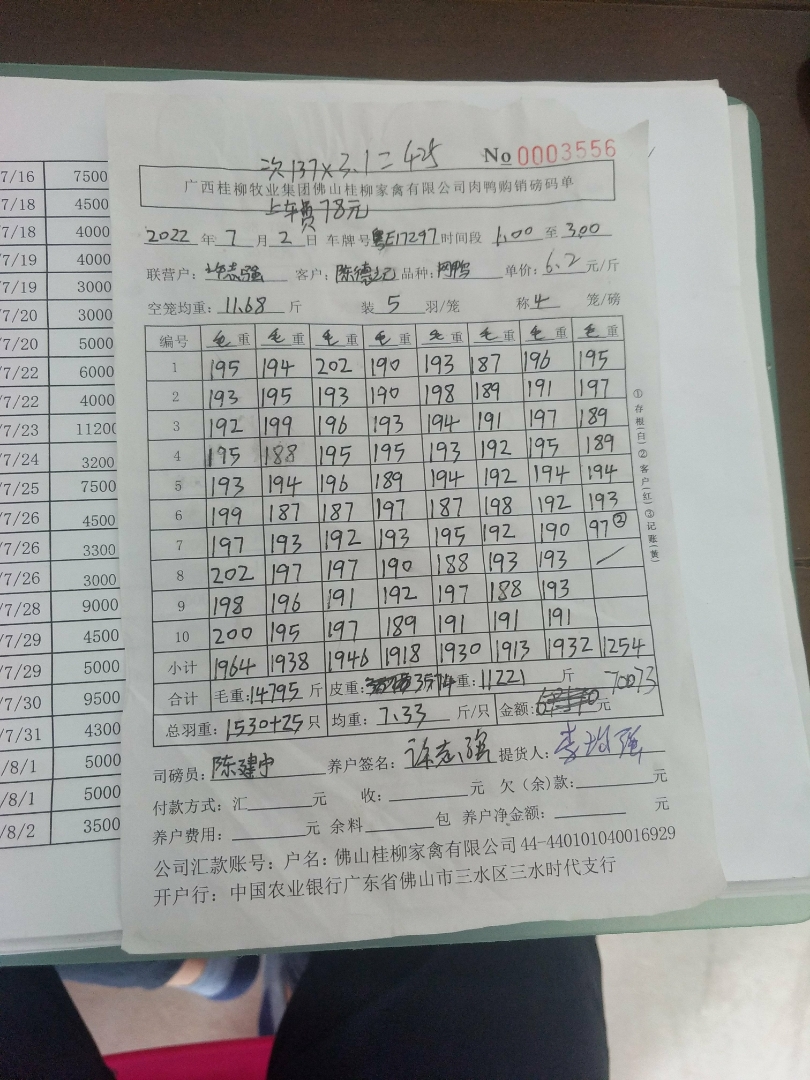 7/16 7500
7/18 4500
7/18 4000
7/19 4000
7/19 3000
7/20 3000
7/20 5000
7/22 6000
7/22 4000
7/23 11200
7/24 3200
7/25 7500
7/26 4500
7/26 3300
7/26 3000
7/28 9000
7/29 4500
7/29 5000
7/30 9500
7/31 4300
/8/1 5000
/8/1 5000
/8/2 3500
次137×3.1=425
No 0003556
广西桂柳牧业集团佛山桂柳家禽有限公司肉鸭购销磅码单
上车费78元
2022 年 7 月 2 日 车牌号 粤E17297 时间段 1.00 至 3.00
联营户: 许志强 客户: 陈德 品种: 网鸭 单价: 6.2 元/斤
空笼均重: 11.68 斤 装 5 羽/笼 称 4 笼/磅
编号 毛重 毛重 毛重 毛重 毛重 毛重 毛重 毛重
1 195 194 202 190 193 187 196 195
2 193 195 193 190 198 189 191 197
3 192 199 196 193 194 191 197 189
4 195 188 195 195 193 192 195 189
5 193 194 196 189 194 192 194 194
6 199 187 187 197 187 198 192 193
7 197 193 192 193 195 192 190 97②
8 202 197 197 190 188 193 193 /
9 198 196 191 192 197 188 193
10 200 195 197 189 191 191 191
小计 1964 1938 1946 1918 1930 1913 1932 1254
合计 毛重: 14795 斤 皮重: 3574 重: 11221 斤 70073
总羽重: 1530+25 只 均重: 7.33 斤/只 金额: 元
司磅员: 陈建中 养户签名: 许志强 提货人: 李 强
付款方式: 汇 元 收: 元 欠(余)款: 元
养户费用: 元 余料 包 养户净金额: 元
公司汇款账号: 户名: 佛山桂柳家禽有限公司 44-440101040016929
开户行: 中国农业银行广东省佛山市三水区三水时代支行
①存根(白)②客户(红)③记账(黄)